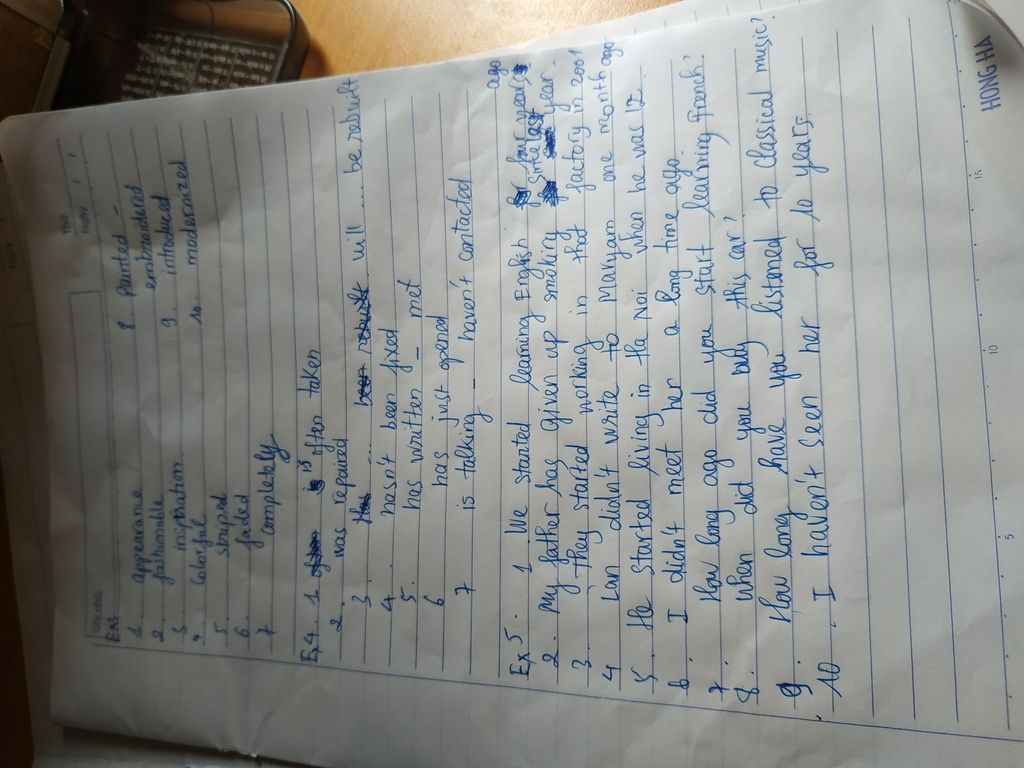 Ex1
1. appearane 8. Painted
2. fashionable embroidered
3. inspiration 9. introduced
4. Colorful 10. modernized
5. striped
6. faded
7 completely
Ex4. 1. is often taken
2. was repaired
3. will ... be rebuilt
4. hasn't been fixed
5. has written _ met
6 has just opened
7 is talking _ haven't contacted
Ex 5. 1 We started learning English four years ago
2. My father has given up smoking since last year.
3. they started working in that factory in 2001
4 Lan didn't write to Maryam one month ago
5. He started living in Ha Noi when he was 12
6. I didn't meet her a long time ago.
7. How long ago did you start learning French?
8. When did you buy this car?
9. How long have you listened to classical music?
10. I haven't seen her for 10 years.
5 10 15
HONG HA